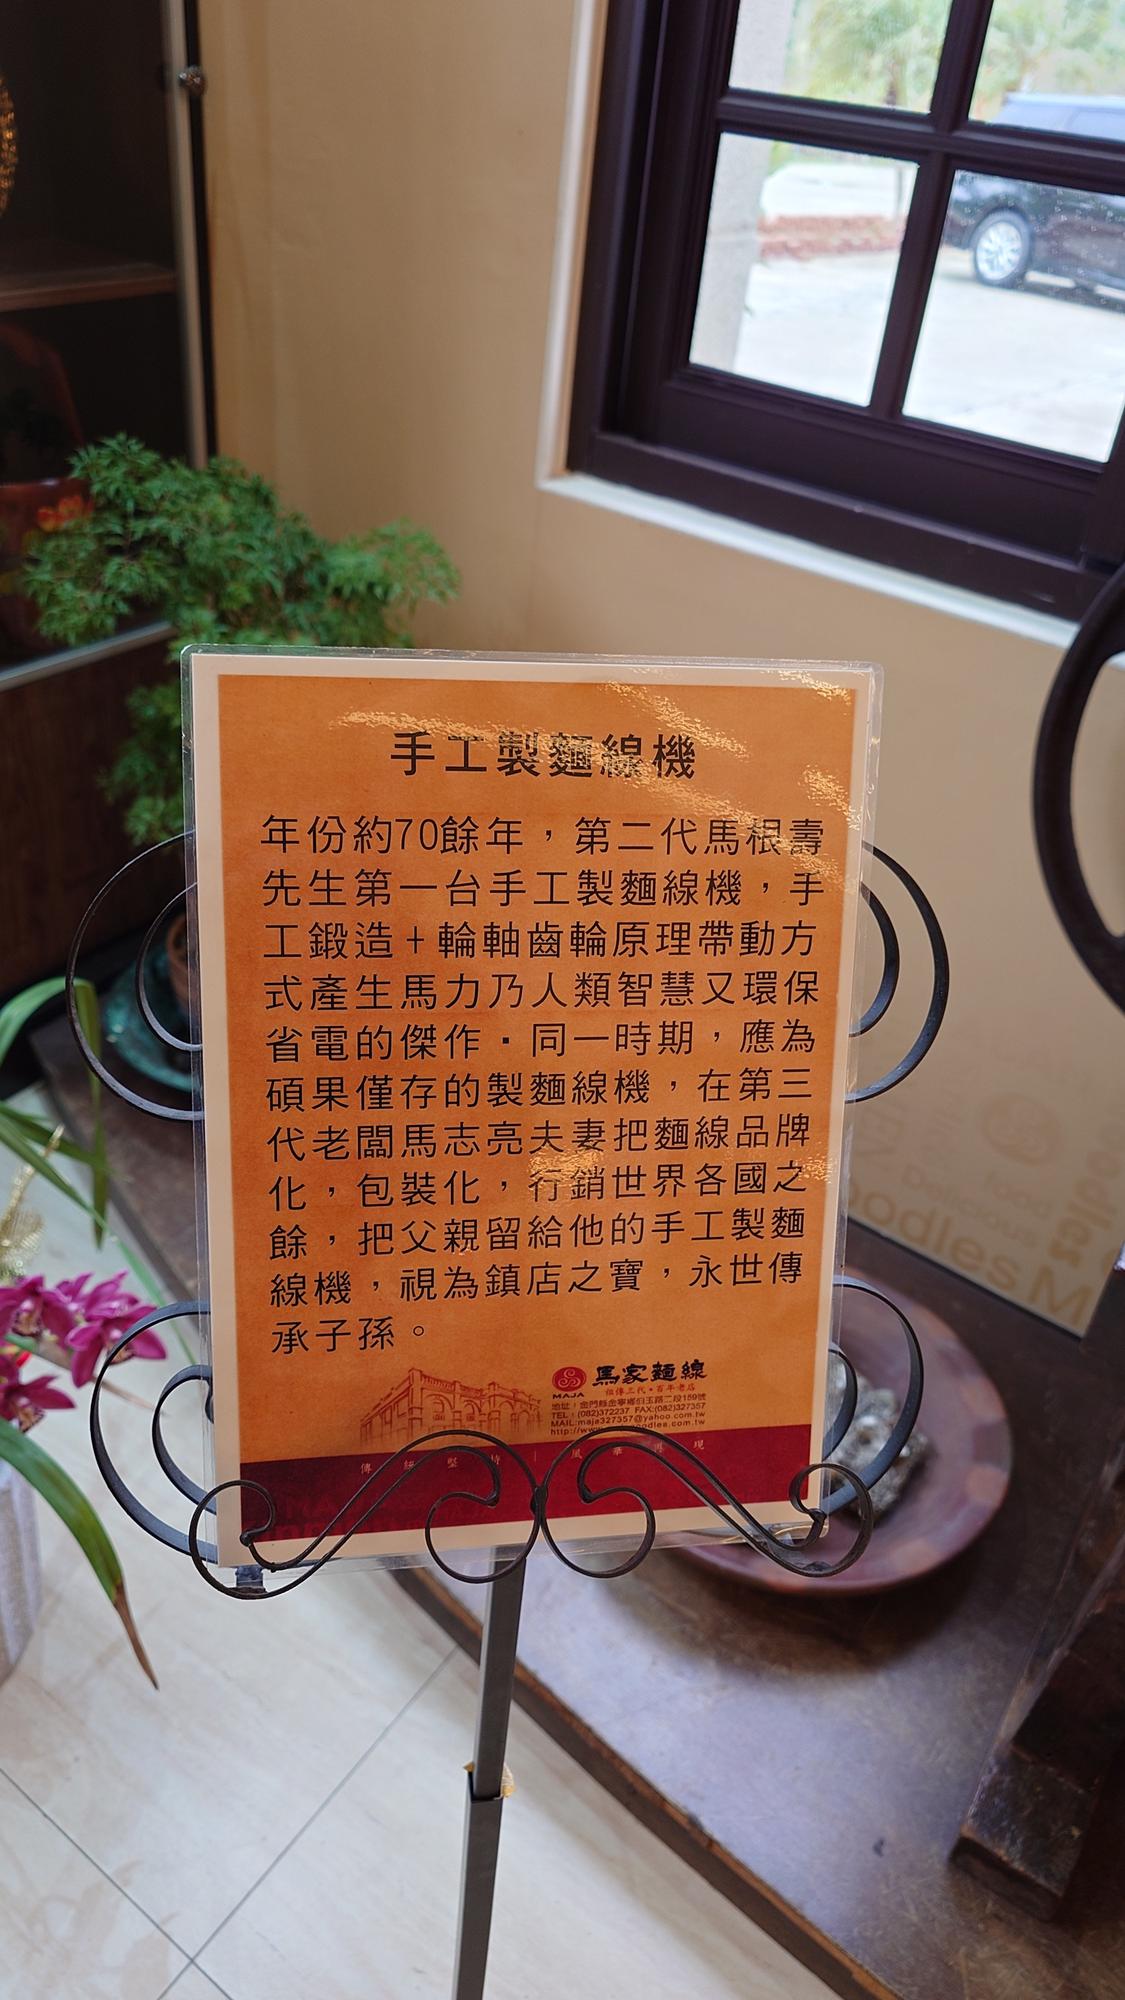 手工製麵線機
年份約70餘年，第二代馬根壽
先生第一台手工製麵線機，手
工鍛造+輪軸齒輪原理帶動方
式產生馬力乃人類智慧又環保
省電的傑作▪同一時期，應為
碩果僅存的製麵線機，在第三
代老闆馬志亮夫妻把麵線品牌
化，包裝化，行銷世界各國之
餘，把父親留給他的手工製麵
線機，視為鎮店之寶，永世傳
承子孫。
MAJA
馬家麵線
祖傳三代•百年老店
地址：金門縣金寧鄉伯玉路二段159號
TEL：(082)372237 FAX:(082)327357
MAIL:maja327357@yahoo.com.tw
http://www. oodles.com.tw
傳 統 堅 持 | 風 華 再 現
Delicious
oodles M